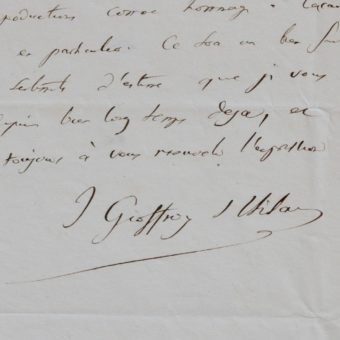 productions comme hommage
en particulier. Ce sera un bien
d'estime que je vous
bien long temps déjà, et
toujours à vous renouveler l'expression
I Geoffroy St Hilaire